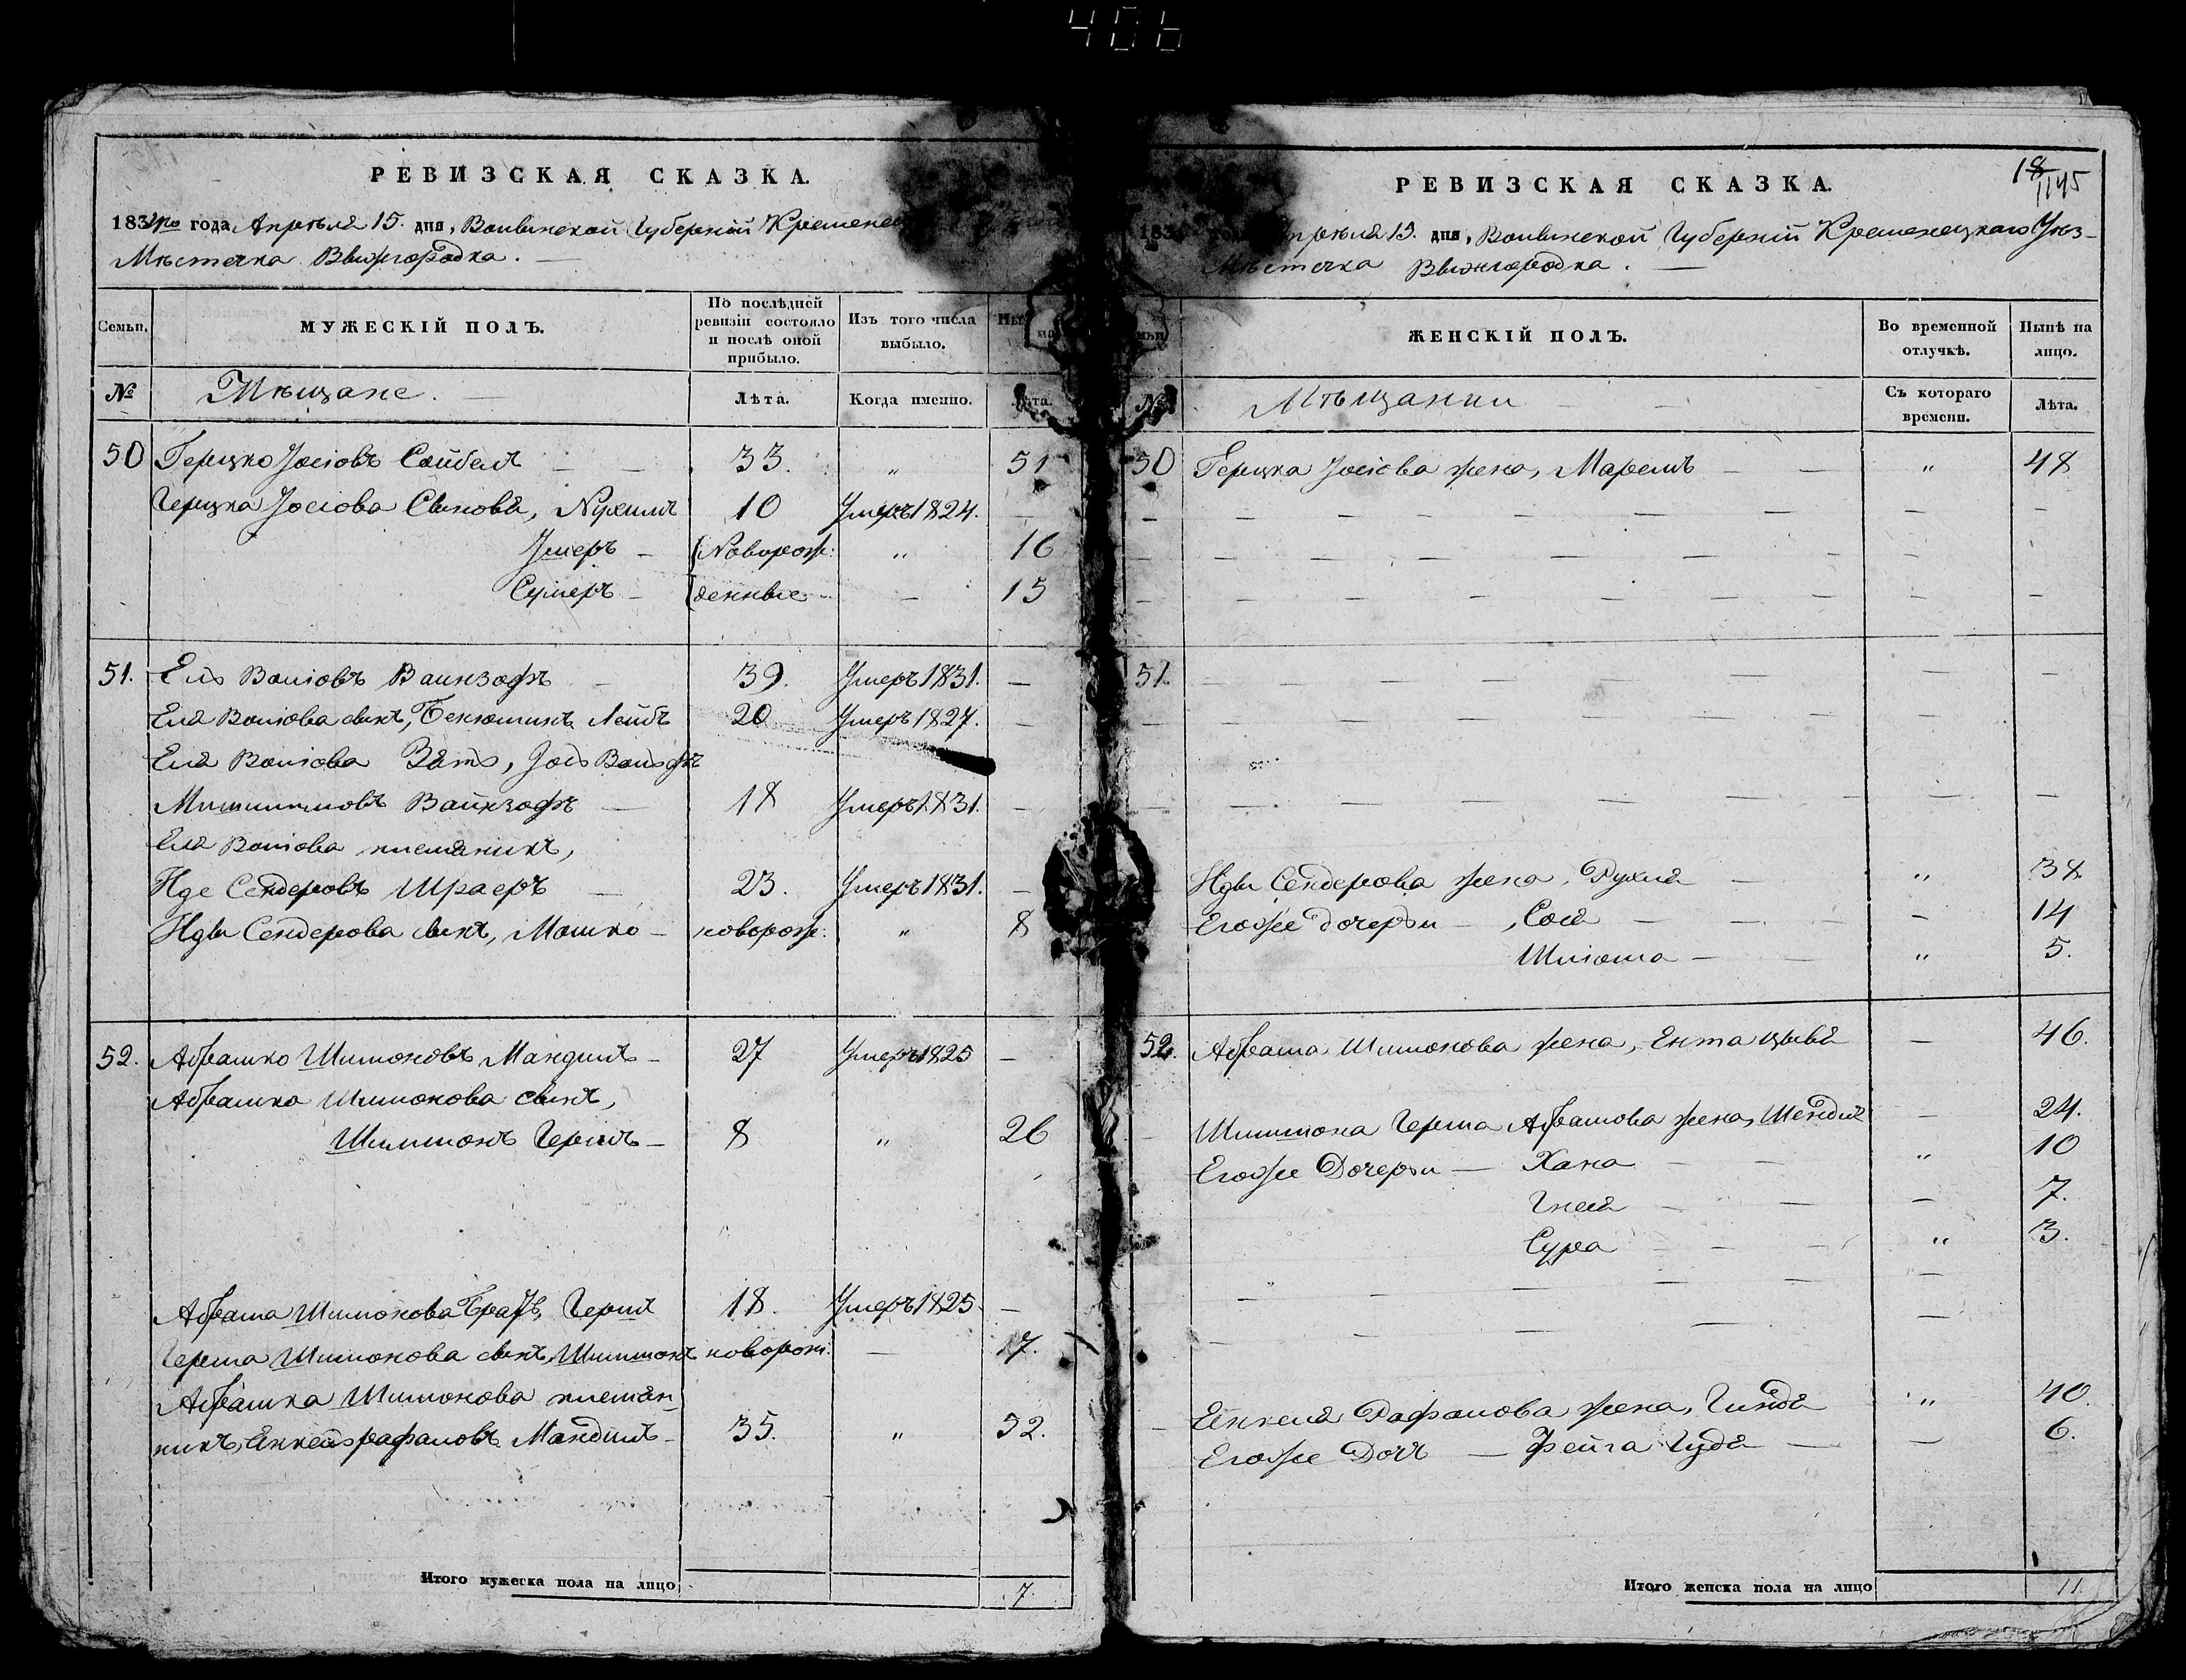 406
РЕВИЗСКАЯ СКАЗКА.
1834го года Апрѣля 15. дня, Волынской Губерніи
Мѣстечка Вышгородка.
Семьи.
МУЖЕСКІЙ ПОЛЪ.
По послѣдней ревизіи состояло и послѣ оной прибыло.
Изъ того числа выбыло.
№
Мѣщане.
Лѣта.
Когда именно.
Лѣта
50 Герцко Іосіовъ 33. „ 51
Герцка Іосіова Сыновья, Нухимъ 10 Умеръ 1824. —
Умеръ — Новорож: „ 16
Сумеръ — денные — 15
51. Ель Волковъ Вайнзофъ — 39. Умеръ 1831. —
Еля сынъ, Бенюминъ Лейбъ 20 Умеръ 1827. —
Еля Зять, Іось
Вайнзофъ — 18 Умеръ 1831. —
Еля племяникъ,
Иде Сендеровъ Шраеръ — 23. Умеръ 1831. —
Иды Сендерова сынъ, Мошко — новорож: „ 8
52. Абрашко Шимоновъ Мандиль — 27 Умеръ 1825 —
Абрашка Шимонова сынъ,
Шимшонъ Гершъ — 8 „ 26
Абраша Шимонова Братъ, Гершъ 18. Умеръ 1825 —
Герша Шимонова сынъ, Шимшонъ новорож: — 17.
Абрашка Шимонова племян
никъ, Енкель рафаловъ Мандиль — 35. „ 52.
Итого мужеска пола на лицо 7.
18
1145
РЕВИЗСКАЯ СКАЗКА.
дня, Волынской Губерніи Кременецкаго Уѣз-
Мѣстечка Вышгородка.
ЖЕНСКІЙ ПОЛЪ.
Во временной отлучкѣ.
Нынѣ на лицо.
№
Мѣщанки
Съ котораго времени.
Лѣта.
50 Герцка Іосіова жена, Маремъ — — „ 48
51.
Иды Сендерова жена, Рухля — „ 38
Егоже дочерьи — , Сося — — 14
— „ 5.
52. Абраша Шимонова жена, Ента цывья — 46.
Шимшона Герша Абрашова жена, Шендля — 24.
Егоже Дочерьи — Хана — „ 10
Гнеся — — 7.
Сура — „ 3.
Енкеля Рафалова жена, Гинда „ 40.
Егоже Дочь — Фейга Гудя — — 6.
Итого женска пола на лицо 11.